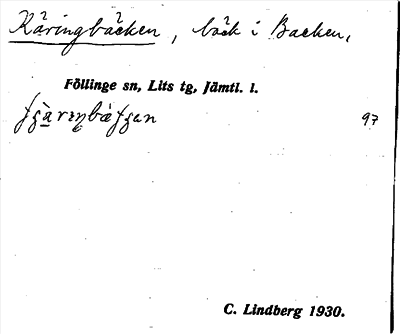 Käringbäcken, bäck i Backen,
Föllinge sn, Lits tg, Jämtl. l.
97
C. Lindberg 1930.